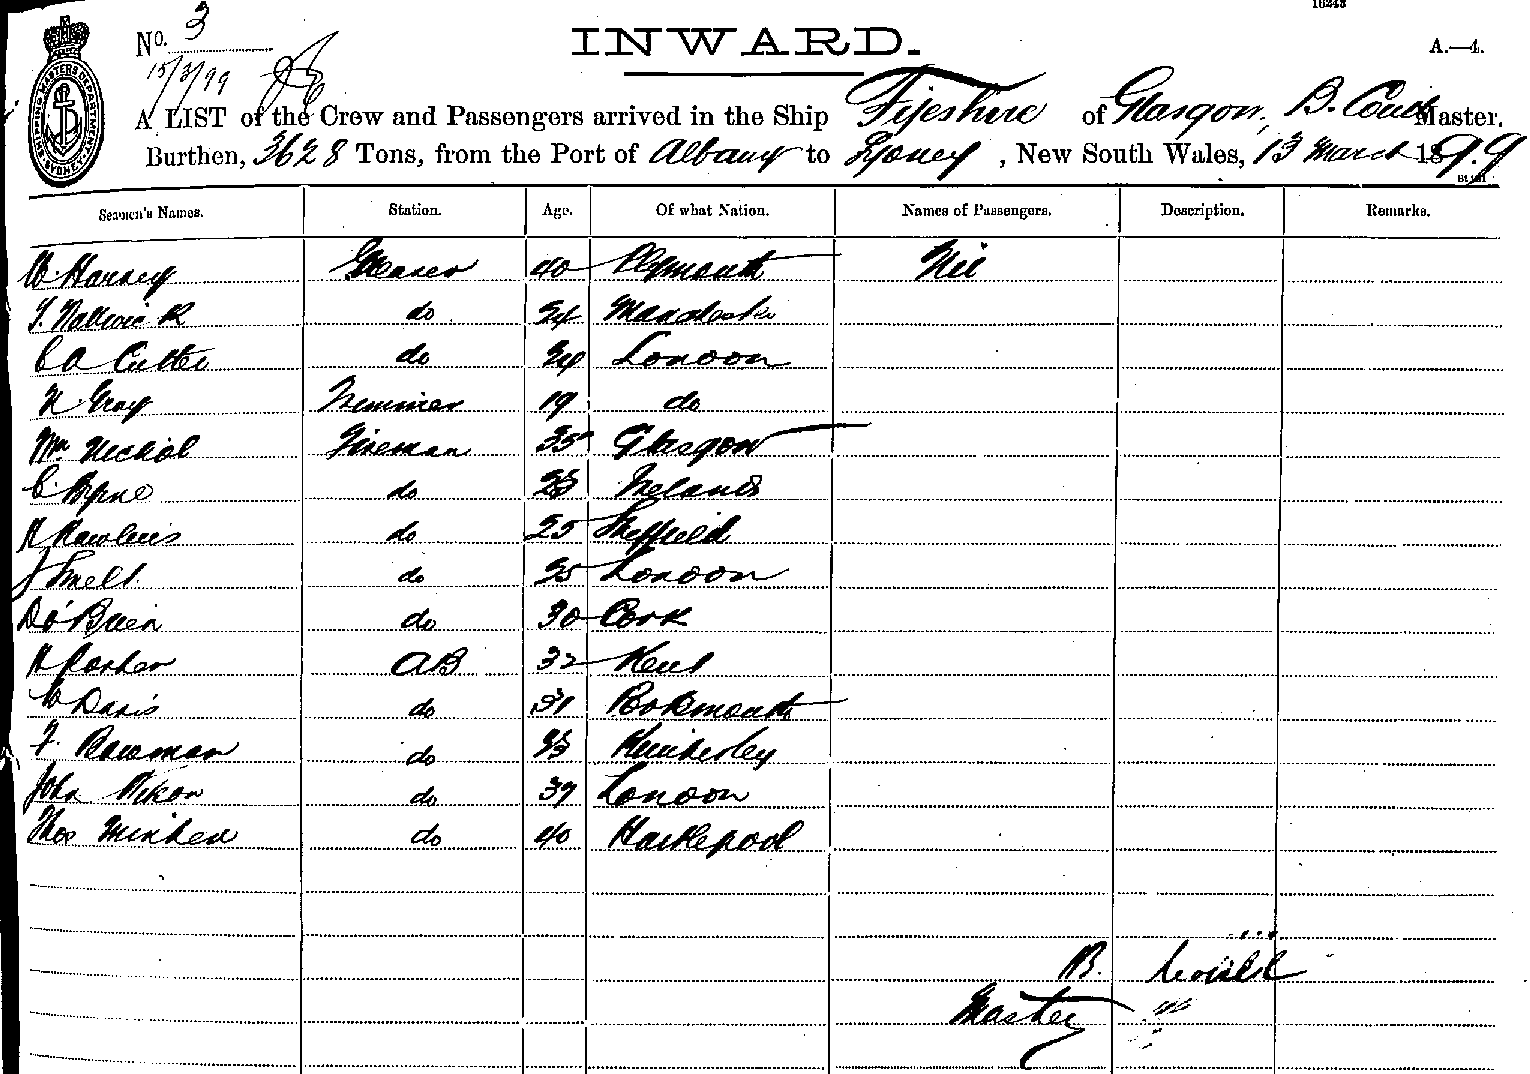 16243
No. 3
INWARD.
A.—4.
15/3/99
A LIST of the Crew and Passengers arrived in the Ship Fifeshire of Glasgow, B. Master.
Burthen, 3628 Tons, from the Port of Albany to Sydney, New South Wales, 13 March 1899
Seamen's Names. Station. Age. Of what Nation. Names of Passengers. Description. Remarks.
W Harvey Greaser 40 Plymouth Nil
do 24 Manchester
C A Cutter do 24 London
H Gray Trimmer 19 do
Wm Nichol Fireman 35 Glasgow
C. Byrne do Ireland
H Rawlins do 25 Sheffield
J Smelt do 25 London
D O'Brien do 30 Cork
H Parker AB 32 Kent
W Davis do 31
F. Bowman do Kimberley
John Nixon do 39 London
Thos do 40 Hartlepool
B.
Master